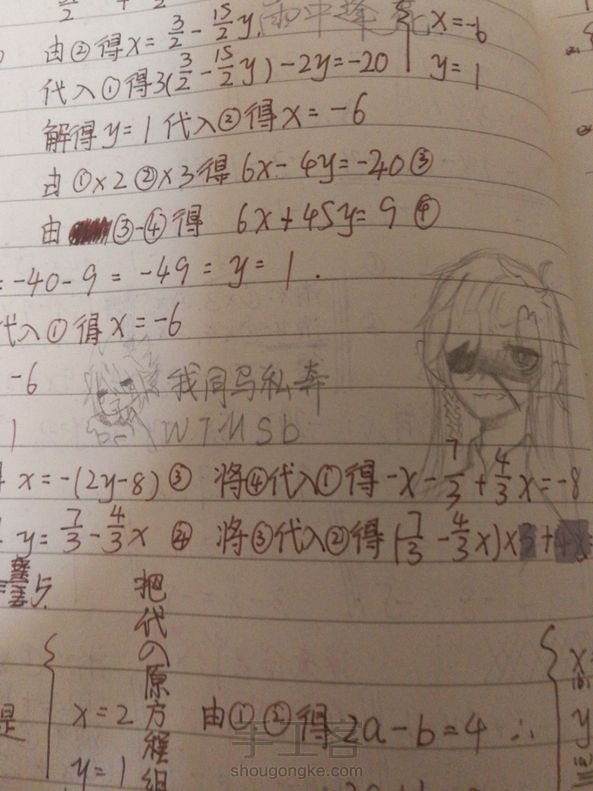 由②得x=3/2-15/2y. x=-6
代入①得3(3/2-15/2y)-2y=-20 y=1
解得y=1代入②得x=-6
由①×2②×3得6x-4y=-40③
由③-④得 6x+45y=9④
=-40-9=-49=y=1.
代入①得x=-6
-6
我同马私奔
1
WTMSb
x=-(2y-8)③ 将④代入①得-x-7/3+4/3x=-8
y=7/3-4/3x ④ 将③代入②得(7/3-4/3x)x
把代入原方程组
是
x=2 由①②得2a-b=4∴
y=1
手工客
shougongke.com